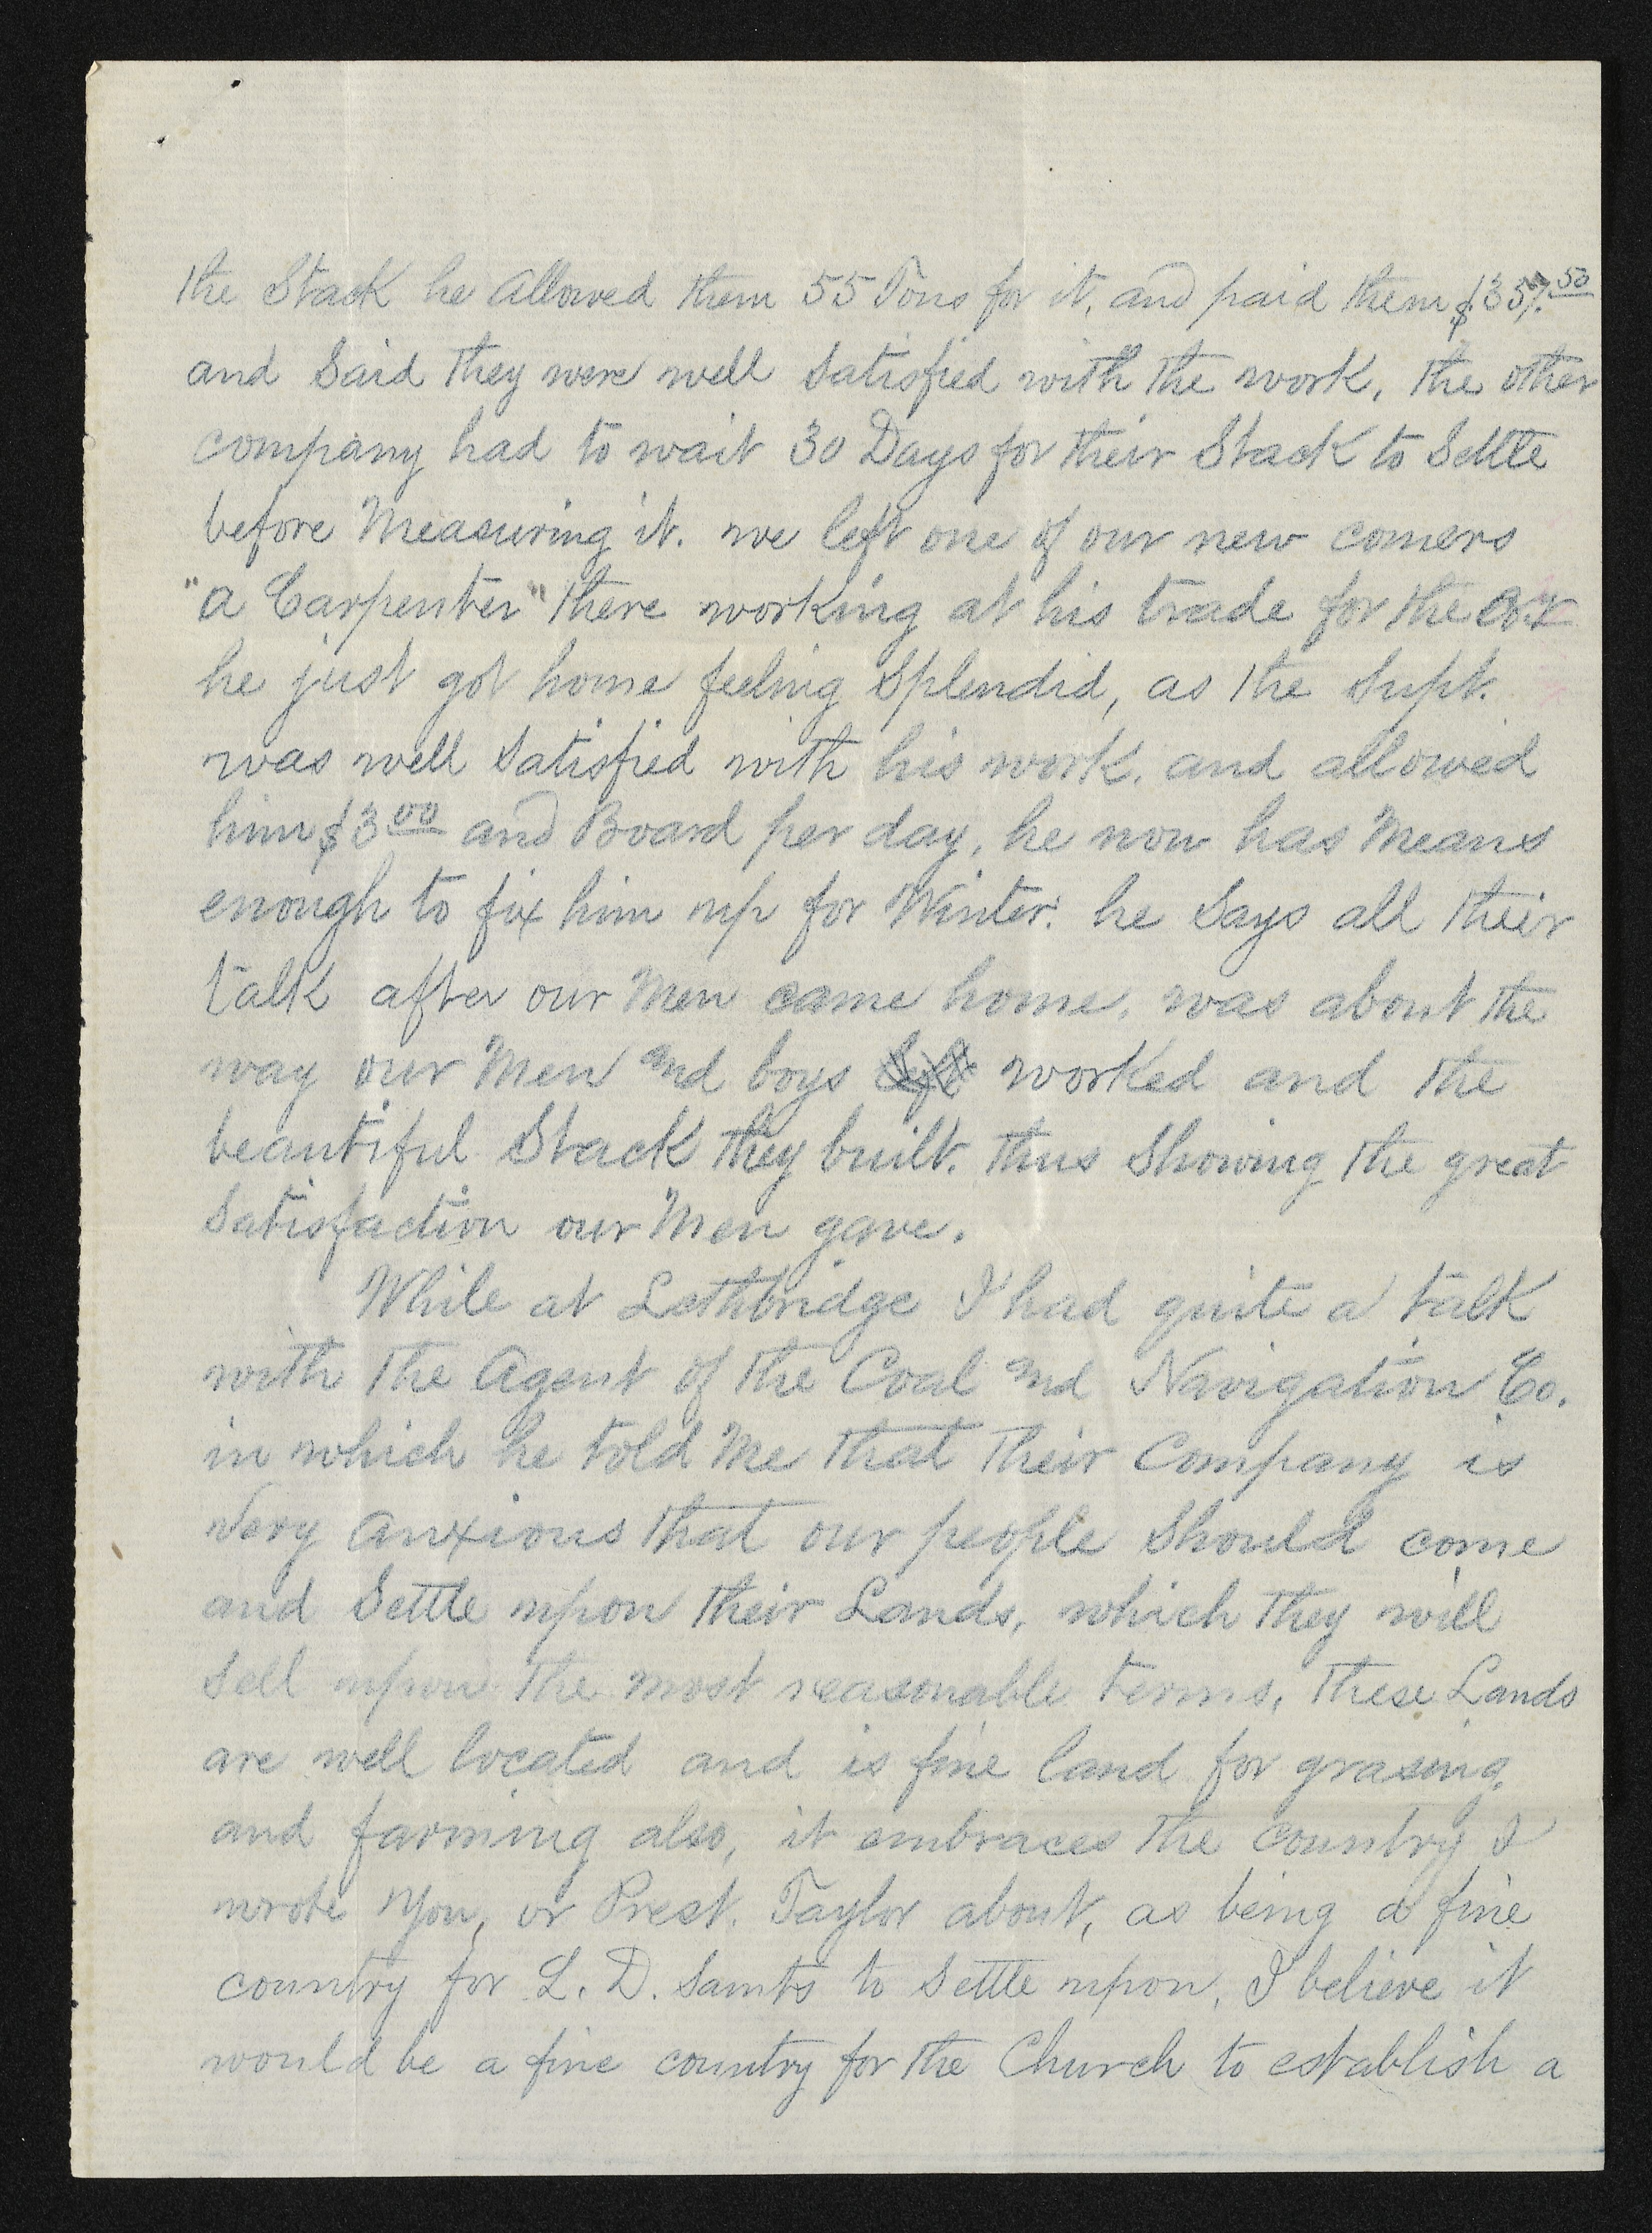 the Stack he Allowed them 55 Tons for it, and paid them $357.50
and Said they were well Satisfied with the work, the other
company had to wait 30 Days for their Stack to Settle
before Measuring it. we left one of our new comers
"a Carpenter" there working at his trade for the
he just got home feeling Splendid, as the Supt.
was well Satisfied with his work. and allowed
him $3.00 and Board per day, he now has Means
enough to fix him up for Winter. he Says all their
talk after our Men came home, was about the
way our Men and boys left worked and the
beautiful Stack they built. thus Showing the great
Satisfaction our Men gave.
While at Lethbridge I had quite a talk
with the Agent of the Coal and Navigation Co.
in which he told Me that their Company is
Very Anxious that our people Should come
and Settle upon their Lands, which they will
Sell upon the most reasonable terms, these Lands
are well located and is fine land for grasing
and farming also, it embraces the country I
wrote You, or Prest. Taylor about, as being a fine
country for L. D. Saints to Settle upon, I believe it
would be a fine country for the Church to establish a